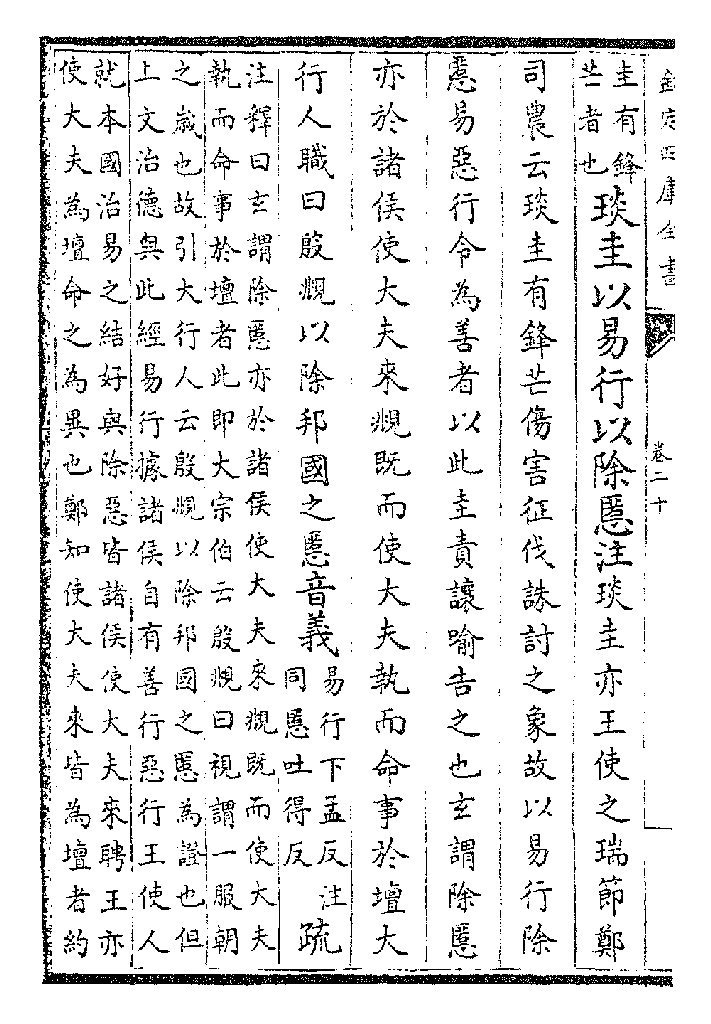 欽定四庫全書 卷二十
圭有鋒
芒者也
琰圭以易行以除慝注琰圭亦王使之瑞節鄭
司農云琰圭有鋒芒傷害征伐誅討之象故以易行除
慝易惡行令為善者以此圭責讓喻告之也玄謂除慝
亦於諸侯使大夫來覜既而使大夫執而命事於壇大
行人職曰殷覜以除邦國之慝音義
易行下孟反注
同慝吐得反
疏
注釋曰玄謂除慝亦於諸侯使大夫來覜既而使大夫
執而命事於壇者此即大宗伯云殷覜曰視謂一服朝
之歲也故引大行人云殷覜以除邦國之慝為證也但
上文治德與此經易行據諸侯自有善行惡行王使人
就本國治易之結好與除惡皆諸侯使大夫來聘王亦
使大夫為壇命之為異也鄭知使大夫來皆為壇者約